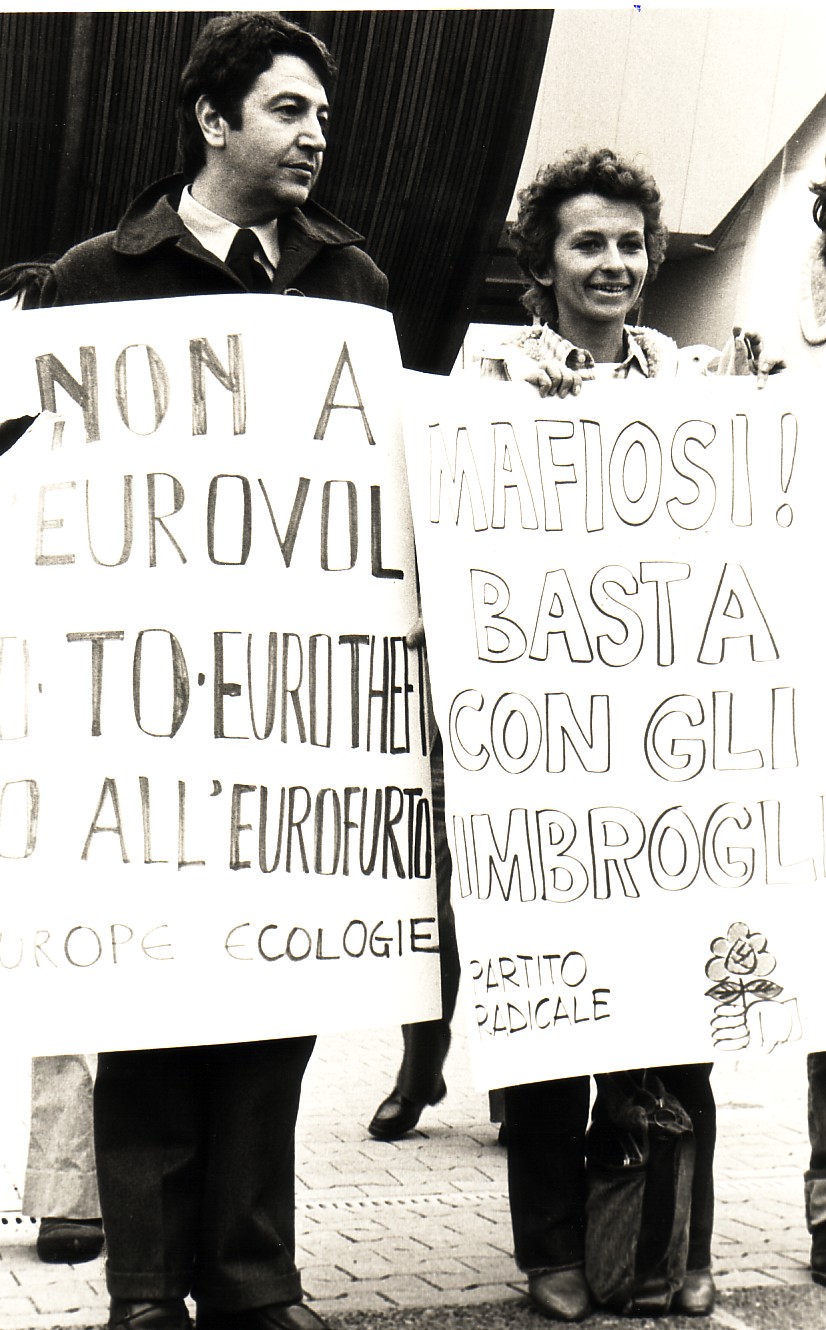 NON A
'EUROVOL
O. TO·EUROTHEFT
O ALL'EUROFURTO
UROPE ECOLOGIE
MAFIOSI!
BASTA
CON GLI
IMBROGLI
PARTITO
RADICALE